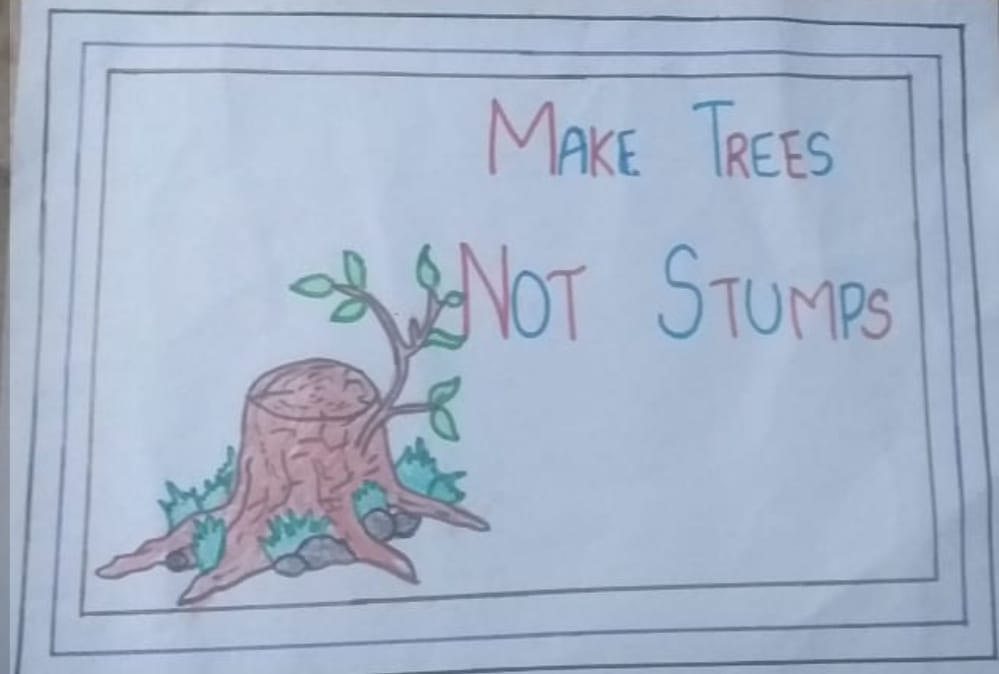 MAKE TREES
NOT STUMPS